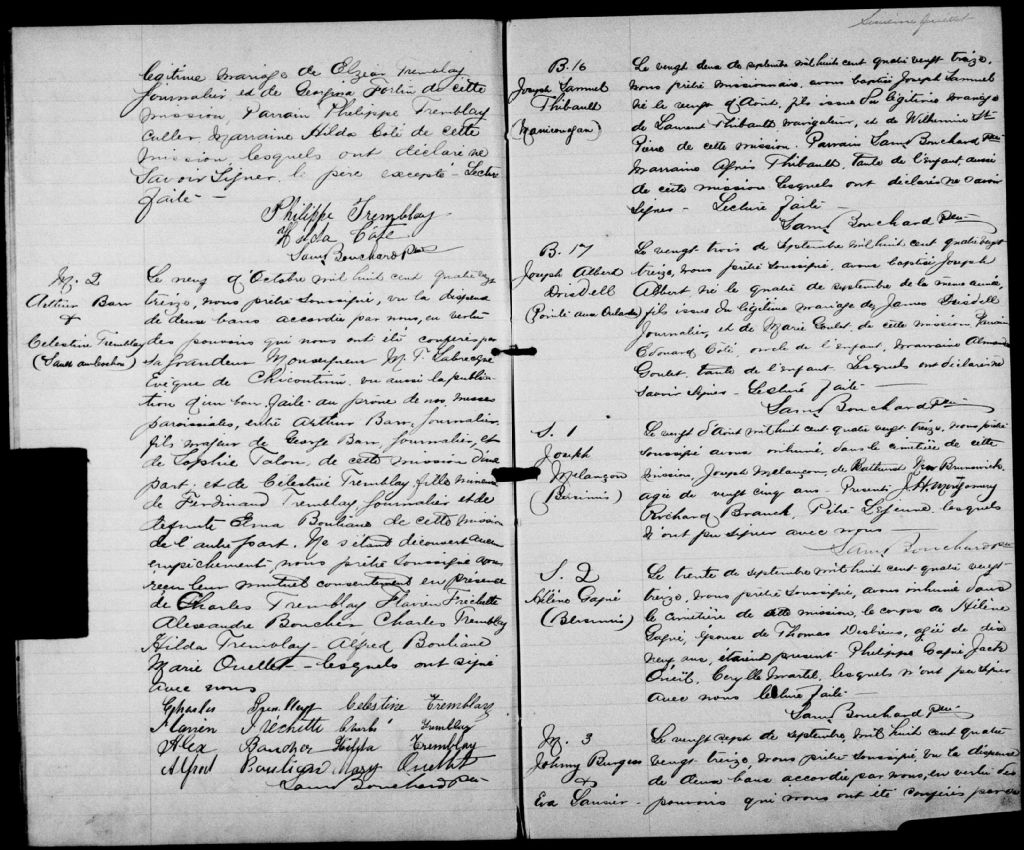 légitime mariage de Elzéar Tremblay
journalier et de Georgina Fortin de cette
mission, Parrain Philippe Tremblay
culler, Marraine Hilda Coté de cette
mission, lesquels ont déclaré ne
savoir signer, le père excepté - Lecture
faite -
Philippe Tremblay
Hilda Côté
Sam Bouchard Ptre
M. 2
Arthur Barr
&
Celestine Tremblay
Le neuf d'Octobre mil huit cent quatre vingt
treize, nous prêtre soussigné, vu la dispense
de deux bans accordée par nous, en vertu
des pouvoirs qui nous ont été conférés par
sa Grandeur Monseigneur M. T. Labrecque
Evêque de Chicoutimi, vu aussi la publica-
tion d'un ban faite au prône de nos messes
paroissiales, entre Arthur Barr, journalier,
fils majeur de George Barr, journalier, et
de Sophie Talon, de cette mission d'une
part, et de Celestine Tremblay fille mineure
de Ferdinand Tremblay journalier et de
défunte Elma Bouliane de cette mission
de l'autre part. Ne s'étant découvert aucun
empêchement nous prêtre soussigné avons
reçu leur mutuel consentement en présence
de Charles Tremblay Flavien Fréchette
Alexandre Boucher Charles Tremblay
Hilda Tremblay - Alfred Bouliane
Marie Ouellet - lesquels ont signé
avec nous
Charles Tremblay Celestine Tremblay
Flavien Fréchette Charles Tremblay
Alex Boucher Hilda Tremblay
Alfred Boulian Mary Ouellet
Sam Bouchard Ptre
B. 16
Joseph Samuel
Thibault
(Manicouagan)
Le vingt deux de septembre mil huit cent quatre vingt treize,
nous prêtre missionnaire, avons baptisé Joseph Samuel
né le vingt d'Août, fils issue du légitime mariage
de Laurent Thibault navigateur, et de Wilhemine St
Pierre de cette mission. Parrain Sam Bouchard Ptre
Marraine Agnès Thibault, tante de l'enfant, aussi
de cette mission lesquels ont déclarés ne savoir
signer - Lecture faite -
Sam Bouchard Ptre
B. 17
Joseph Albert
Drisdell
(Pointe aux Outardes)
Le vingt trois de septembre mil huit cent quatre vingt
treize, nous prêtre soussigné, avons baptisé Joseph
Albert, né le quatre de septembre de la même année,
fils issue du légitime mariage de James Drisdell
journalier, et de Marie Goulet, de cette mission, Parrain
Edouard Côté, oncle de l'enfant, marraine
Goulet, tante de l'enfant. Lesquels ont déclarés ne
savoir signer - Lecture faite -
Sam Bouchard Ptre
S. 1
Joseph
Melançon
(Bersimis)
Le vingt d'Août mil huit cent quatre vingt treize, nous prêtre
soussigné avons inhumé, dans le cimetière de cette
mission, Joseph Melançon, de Bathurst New Brunswick,
agée de vingt cinq ans - Présents J. H. Montgomery
Richard Branch, Pitre Lejeune, lesquels
n'ont pu signer avec nous -
Sam Bouchard Ptre
S. 2
Hélène Gagné
(Bersimis)
Le trente de septembre mil huit cent quatre vingt-
treize, nous prêtre soussigné, avons inhumé dans
le cimetière de cette mission, le corps de Hélène
Gagné, épouse de Thomas Desbiens, agée de dix
neuf ans, étaient présent Philippe Gagné Jack
Oneil, Cerylle Martel, lesquels n'ont pu signer
avec nous lecture faite -
Sam Bouchard Ptre
M. 3
Johnny Burgess
&
Eva Savoir -
Le vingt sept de septembre, mil huit cent quatre
vingt treize, nous prêtre soussigné, vu la dispense
de deux bans accordée par nous, en vertu des
pouvoirs qui nous ont été conférés par sa